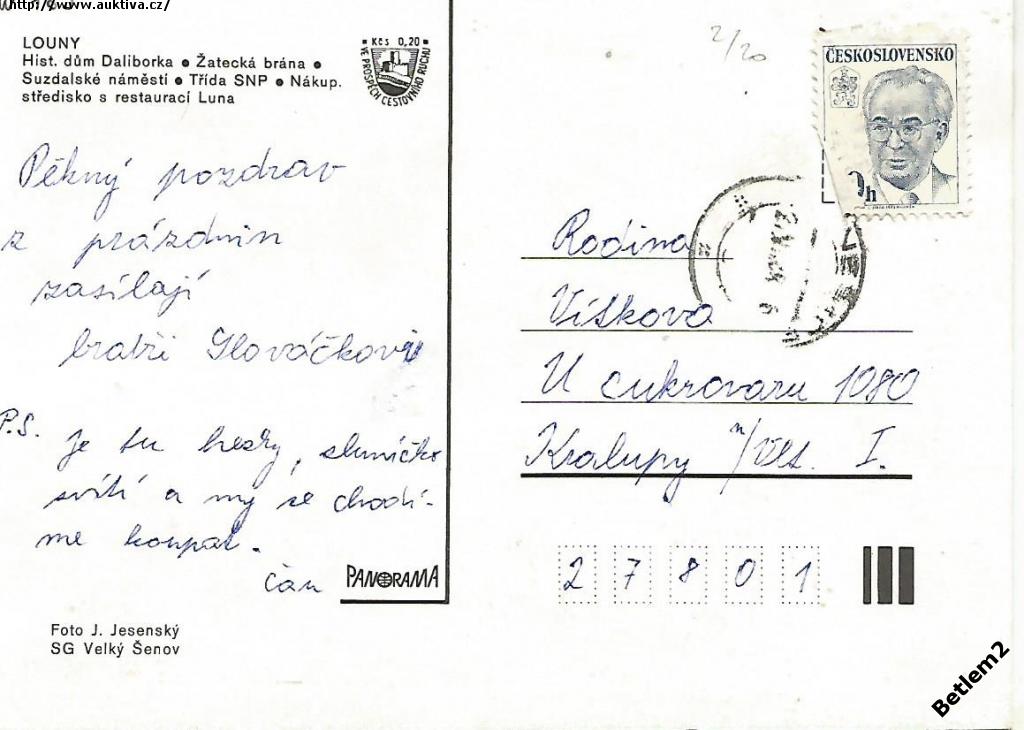 http://www.auktiva.cz/
LOUNY
Hist. dům Daliborka • Žatecká brána •
Suzdalské náměstí • Třída SNP • Nákup.
středisko s restaurací Luna
• Kčs 0,20 •
VE PROSPĚCH CESTOVNÍHO RUCHU
2/20
ČESKOSLOVENSKO
h
Pěkný pozdrav
z prázdnin
zasílají
bratři Slováčkovi
P.S.
je tu hezky, sluníčko
svítí a my se chodí-
me koupat.
PANORAMA
Foto J. Jesenský
SG Velký Šenov
Rodina
Vítkova
U cukrovaru 1080
Kralupy n/Vlt. I.
27801
Betlem2